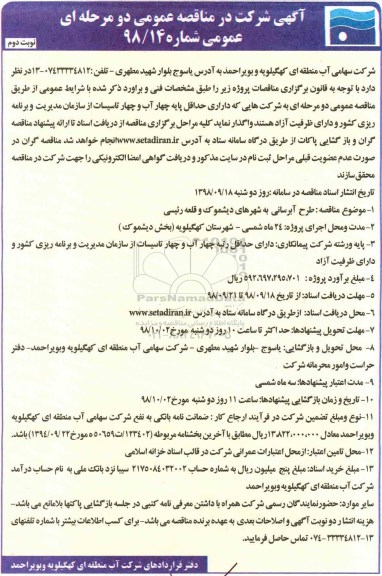 آگهی شرکت در مناقصه عمومی دو مرحله ای
عمومی شماره ۹۸/۱۴
نوبت دوم
شرکت سهامی آب منطقه ای کهگیلویه و بویراحمد به آدرس یاسوج بلوار شهید مطهری - تلفن: ۰۷۴۳۳۳۳۴۸۱۲-۱۳ در نظر
دارد با توجه به قانون برگزاری مناقصات پروژه زیر را طبق مشخصات فنی و برآورد ذکر شده با شرایط عمومی از طریق
مناقصه عمومی دو مرحله ای به شرکت هایی که دارای حداقل پایه چهار آب و چهار تاسیسات از سازمان مدیریت و برنامه
ریزی کشور و دارای ظرفیت آزاد هستند واگذار نماید کلیه مراحل برگزاری مناقصه از دریافت اسناد تا ارائه پیشنهاد مناقصه
گران و باز گشایی پاکات از طریق درگاه سامانه ستاد به آدرس www.setadiran.ir انجام خواهد شد مناقصه گران در
صورت عدم عضویت قبلی مراحل ثبت نام در سایت مذکور و دریافت گواهی امضا الکترونیکی را جهت شرکت در مناقصه
محقق سازند
تاریخ انتشار اسناد مناقصه در سامانه: روز دو شنبه ۱۳۹۸/۰۹/۱۸
۱-موضوع مناقصه: طرح آبرسانی به شهرهای دیشموک و قلعه رئیسی
۲-مدت ومحل اجرای پروژه: ۲۴ ماه شمسی - شهرستان کهگیلویه (بخش دیشموک)
۳- پایه ورشته شرکت پیمانکاری: دارای حداقل رتبه چهار آب و چهار تاسیسات از سازمان مدیریت و برنامه ریزی کشور و
دارای ظرفیت آزاد
۴-مبلغ برآورد پروژه : ۵۹۲.۶۹۷.۲۹۵.۷۰۱ ریال
۵-مهلت دریافت اسناد: از تاریخ ۹۸/۰۹/۱۸ تا ۹۸/۰۹/۲۱
۶-محل دریافت اسناد: ازطریق درگاه سامانه ستاد به آدرس www.setadiran.ir
۷-مهلت تحویل پیشنهادها: حداکثر تا ساعت ۱۰ روز دو شنبه مورخ ۹۸/۱۰/۰۲
۸- محل تحویل و بازگشایی: یاسوج -بلوار شهید مطهری - شرکت سهامی آب منطقه ای کهگیلویه وبویراحمد- دفتر
حراست وامور محرمانه شرکت
۹- مدت اعتبار پیشنهادها: سه ماه شمسی
۱۰-تاریخ و زمان بازگشایی پیشنهادها: ساعت ۱۱ روز دو شنبه مورخ ۹۸/۱۰/۰۲
۱۱-نوع ومبلغ تضمین شرکت در فرآیند ارجاع کار : ضمانت نامه بانکی به نفع شرکت سهامی آب منطقه ای کهگیلویه
وبویراحمد معادل ۱۳.۸۲۲.۰۰۰.۰۰۰ ریال مطابق با آخرین بخشنامه مربوطه (۱۲۳۴۰۲/ت۵۰۶۵۹ه مورخ ۱۳۹۴/۰۹/۲۲) باشد.
۱۲-محل تامین اعتبار: ازمحل اعتبارات عمرانی شرکت در قالب اسناد خزانه اسلامی
۱۳-مبلغ خرید اسناد: مبلغ پنج میلیون ریال به شماره حساب ۲۱۷۵۰۸۴۰۳۲۰۰۲ سیبا نزد بانک ملی به نام حساب درآمد
شرکت آب منطقه ای کهگیلویه وبویراحمد
سایر موارد: حضورنمایندگان رسمی شرکت همراه با داشتن معرفی نامه کتبی در جلسه بازگشایی پاکتها بلامانع می باشد-
هزینه انتشار دو نوبت آگهی و اصلاحات بعدی به عهده برنده مناقصه می باشد- برای کسب اطلاعات بیشتر با شماره تلفنهای
۰۷۴-۳۳۳۳۴۸۱۲-۱۳ تماس حاصل فرمایید.
دفتر قراردادهای شرکت آب منطقه ای کهگیلویه وبویراحمد